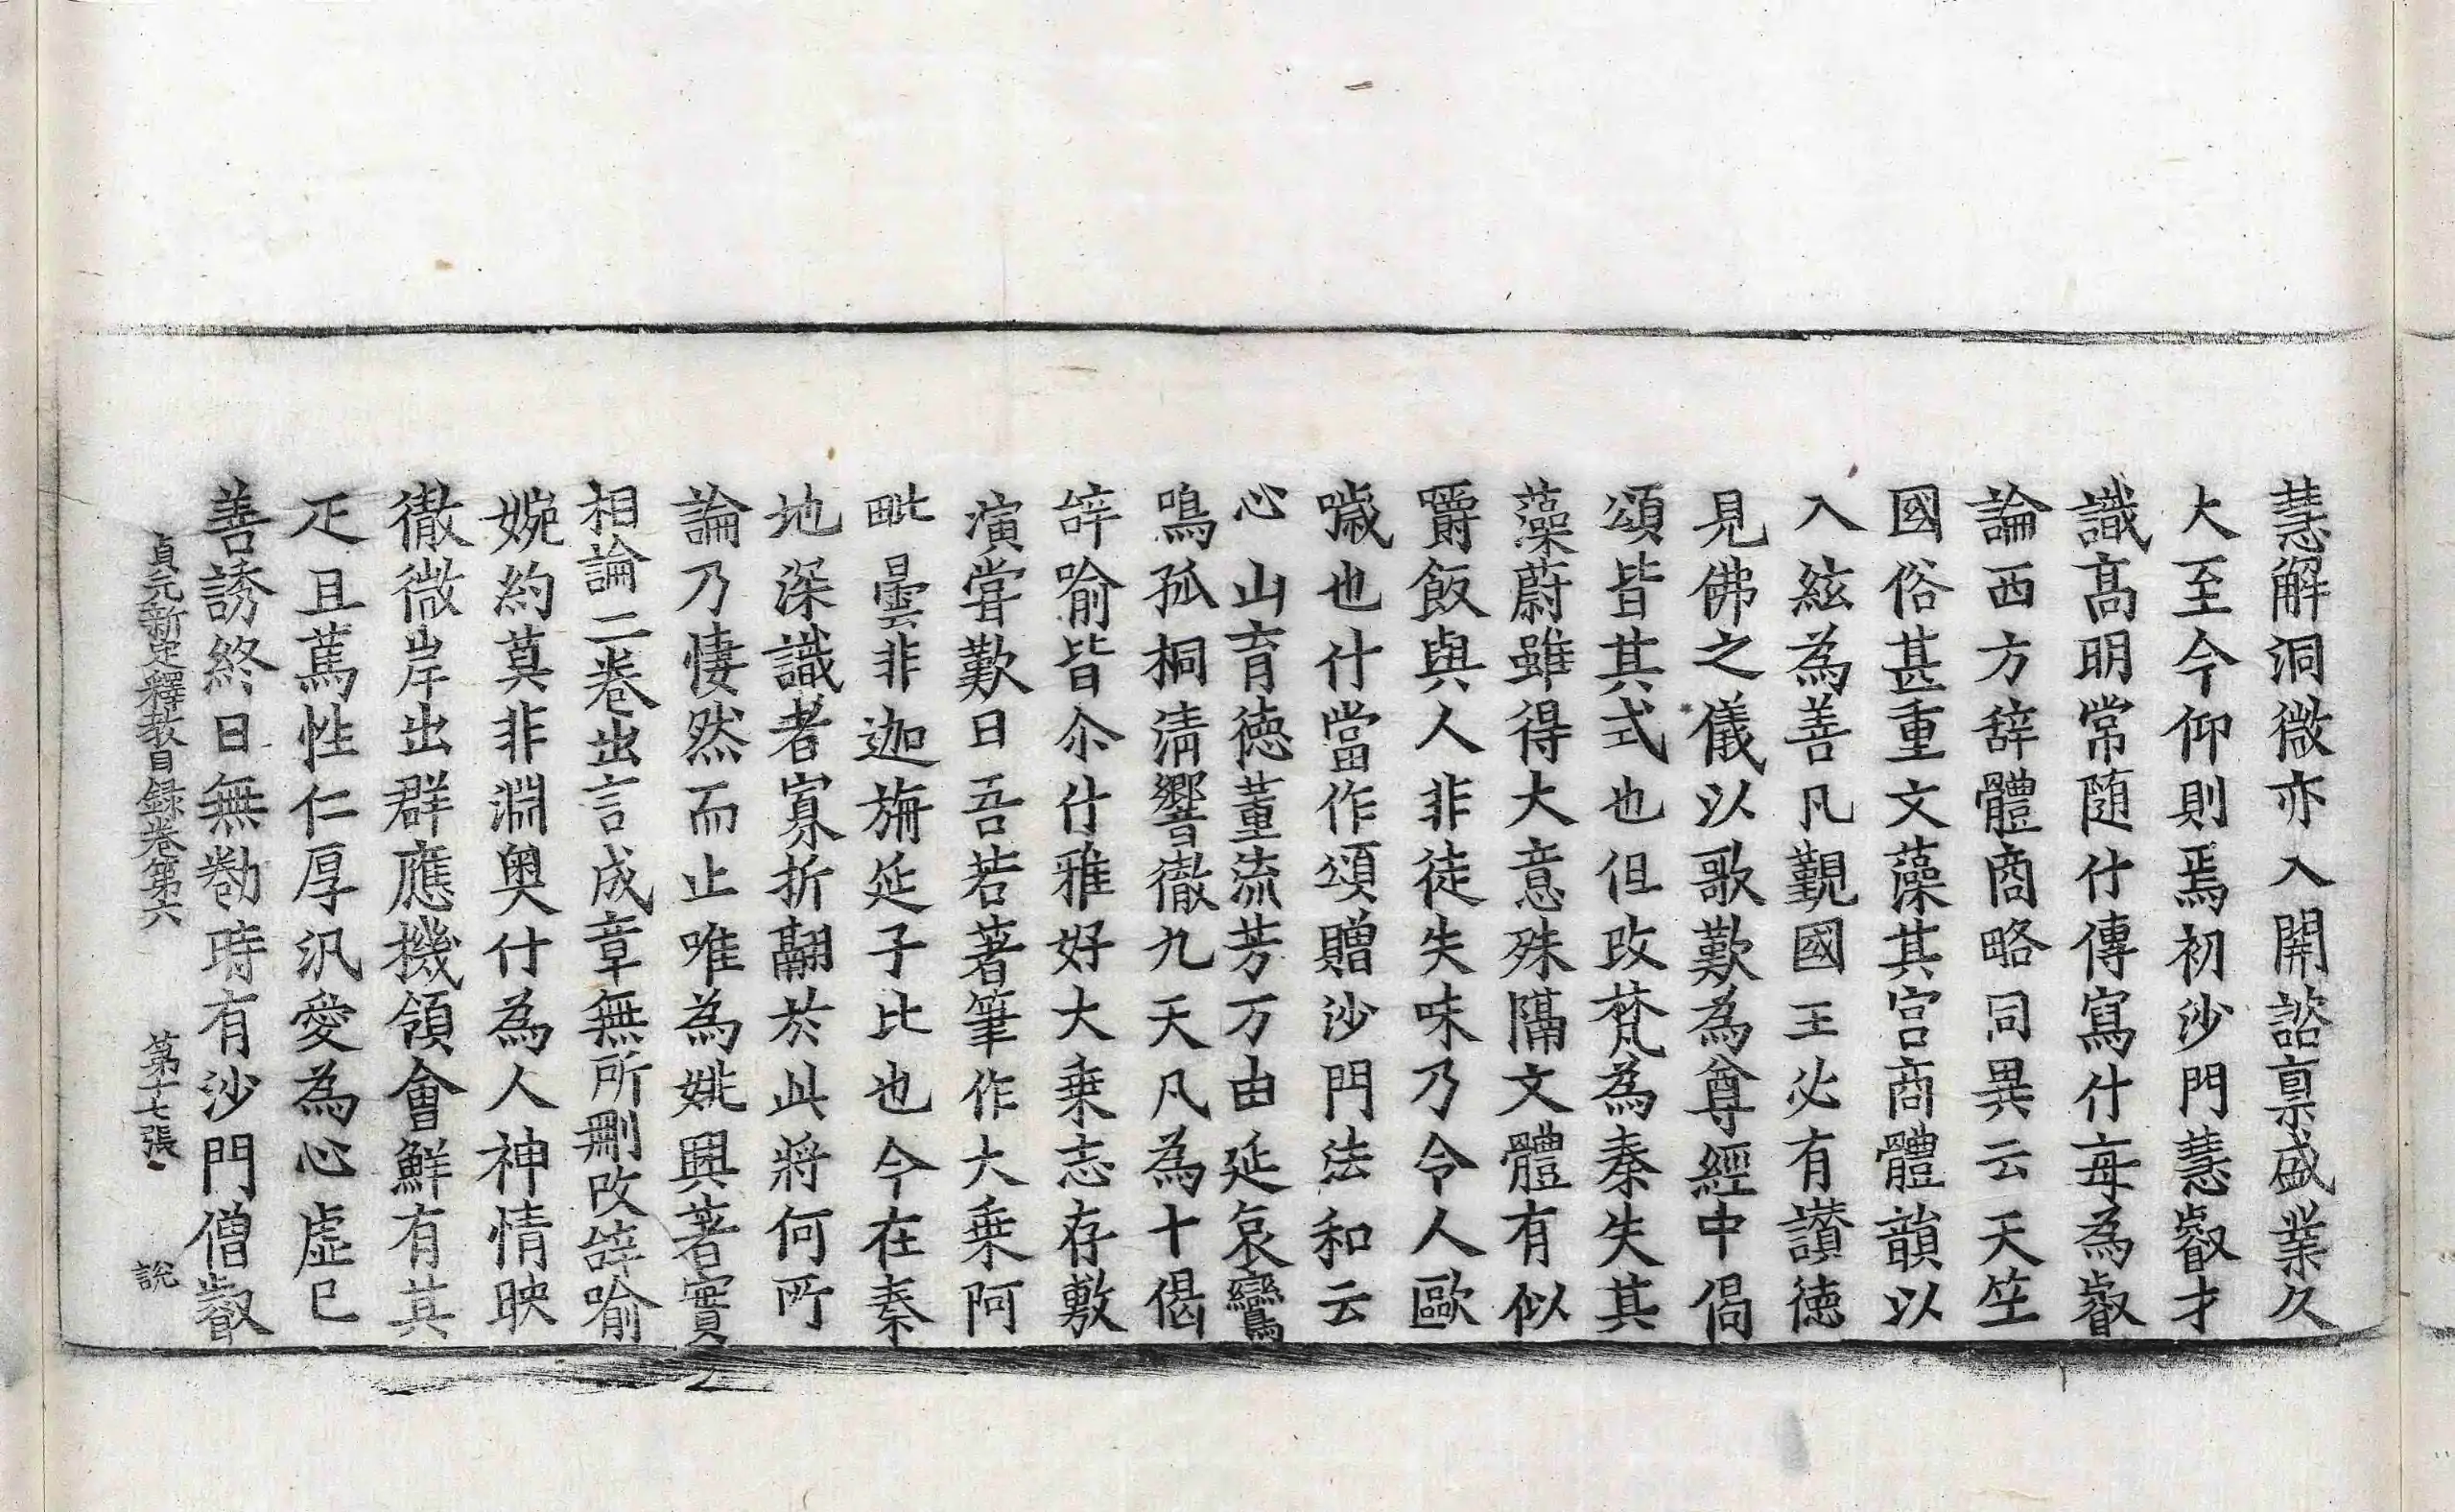 慧解洞微亦入開諮禀盛業久
大至今仰則焉初沙門慧叡才
識髙明常隨什傳寫什每為叡
論西方辞體商略同異云天竺
國俗甚重文藻其宫商體韻以
入絃為善凡覲國王必有讃徳
見佛之儀以歌歎為尊經中偈
頌皆其式也但改梵為秦失其
藻蔚雖得大意殊隔文體有似
嚼飯與人非徒失味乃令人歐
噦也什當作頌贈沙門法和云
心山育徳董流芳万由延哀鸞
鳴孤桐清響徹九天凡為十偈
辝喻皆尒什雅好大乗志存敷
演甞歎曰吾若著筆作大乗阿
毗曇非迦旃延子比也今在秦
地深識者寡折翮於此將何所
論乃悽然而止唯為姚興著實
相論二卷出言成章無所刪改辝喻
婉約莫非淵奥什為人神情映
徹微岸出群應機領會鮮有其
疋且萬性仁厚汎愛為心虛已
善誘終日無勌時有沙門僧叡
貞元新定釋教目録卷第六　第十七張　說